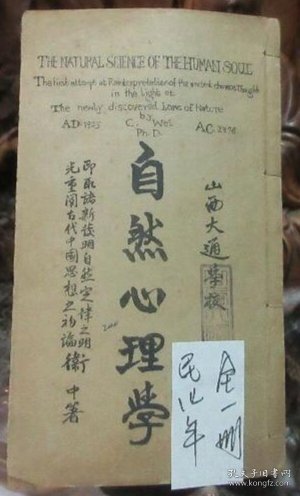 THE NATURAL SCIENCE OF THE HUMAN SOUL
The first attempt at Reinterpretation of the ancient chinese thought
in the light of
The newly discovered Laws of Nature
by
A.D. 1925 C. Wei A.C. 2476
Ph. D.
山西大通學校
自然心理學
即取諸新發明自然定律之明
光重闡古代中國思想之初論
衛中著
全一册
民14年
孔夫子旧书网